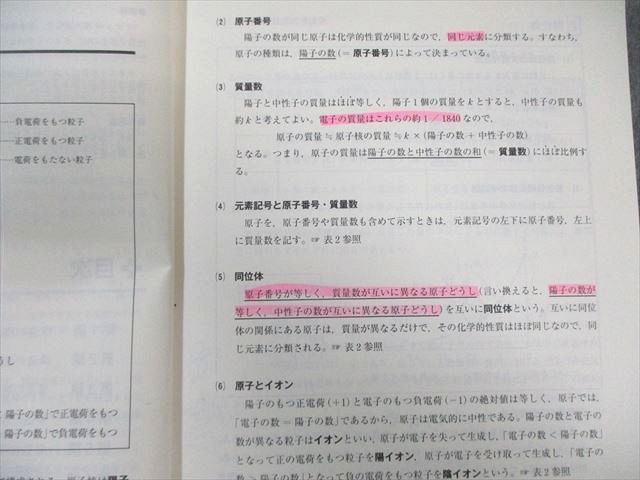 ……負電荷をもつ粒子
……正電荷をもつ粒子
……電荷をもたない粒子
目次
うし
陽子の数」で正電荷をもつ
陽子の数」で負電荷をもつ
(2) 原子番号
陽子の数が同じ原子は化学的性質が同じなので，同じ元素に分類する。すなわち，
原子の種類は，陽子の数(＝原子番号)によって決まっている。
(3) 質量数
陽子と中性子の質量はほぼ等しく，陽子1個の質量をkとすると，中性子の質量も
約kと考えてよい。電子の質量はこれらの約1／1840なので，
原子の質量≒原子核の質量≒k×(陽子の数＋中性子の数)
となる。つまり，原子の質量は陽子の数と中性子の数の和(＝質量数)にほぼ比例す
る。
(4) 元素記号と原子番号・質量数
原子を，原子番号や質量数も含めて示すときは，元素記号の左下に原子番号，左上
に質量数を記す。☞ 表2参照
(5) 同位体
原子番号が等しく，質量数が互いに異なる原子どうし(言い換えると，陽子の数が
等しく，中性子の数が互いに異なる原子どうし)を互いに同位体という。互いに同位
体の関係にある原子は，質量が異なるだけで，その化学的性質はほぼ同じなので，同
じ元素に分類される。☞ 表2参照
(6) 原子とイオン
陽子のもつ正電荷(+1)と電子のもつ負電荷(−1)の絶対値は等しく，原子では，
「電子の数＝陽子の数」であるから，原子は電気的に中性である。陽子の数と電子の
数が異なる粒子はイオンといい，原子が電子を失って生成し，「電子の数＜陽子の数」
となって正の電荷をもつ粒子を陽イオン，原子が電子を受け取って生成し，「電子の
数＞陽子の数」となって負の電荷をもつ粒子を陰イオンという。☞ 表2参照